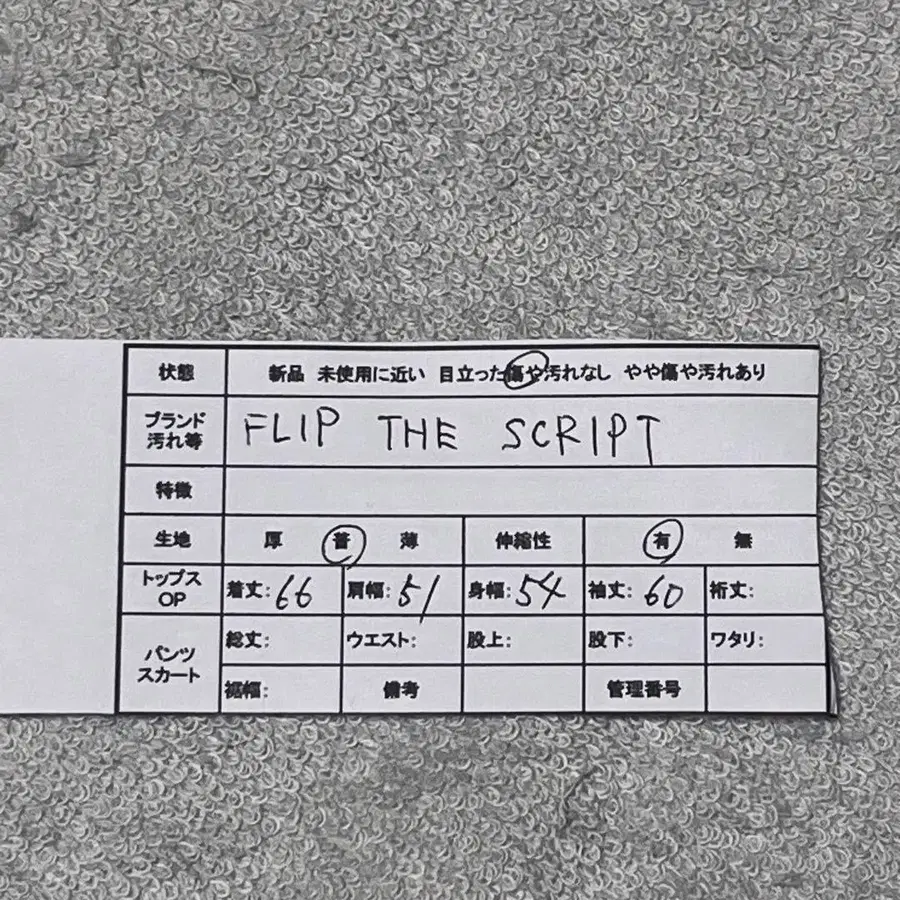 状態 新品 未使用に近い 目立った傷や汚れなし やや傷や汚れあり
ブランド
汚れ等
FLIP THE SCRIPT
特徴
生地 厚 普 薄 伸縮性 有 無
トップス
OP
着丈: 66 肩幅: 51 身幅: 54 袖丈: 60 裄丈:
パンツ
スカート
総丈: ウエスト: 股上: 股下: ワタリ:
裾幅: 備考 管理番号